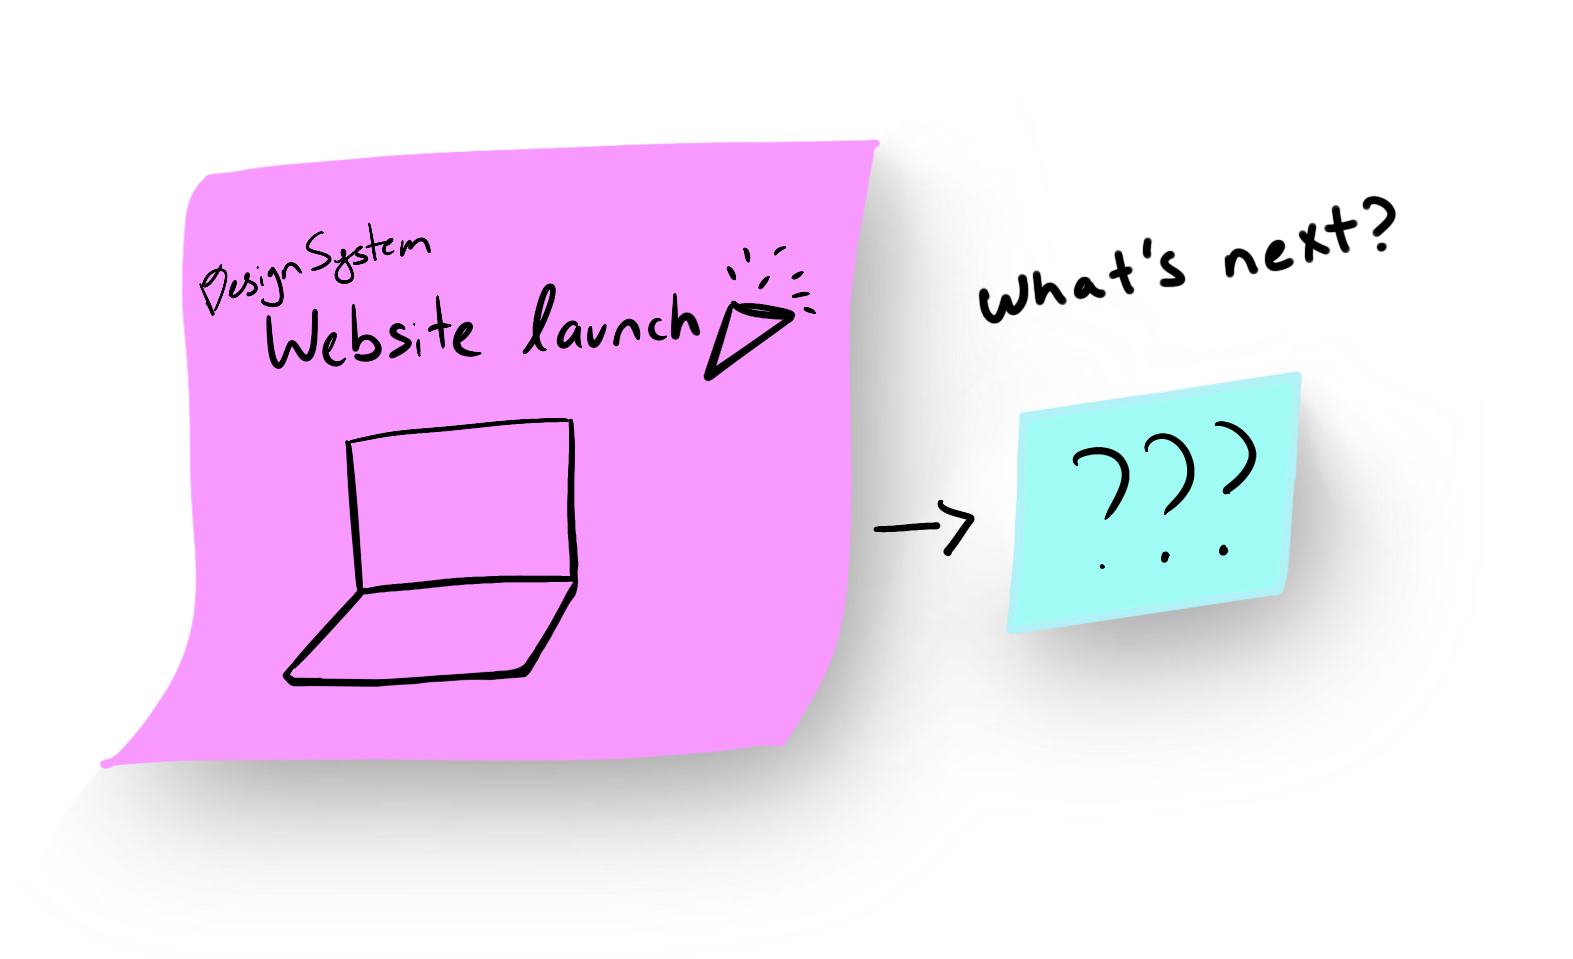 Design System
Website launch
What's next?
???